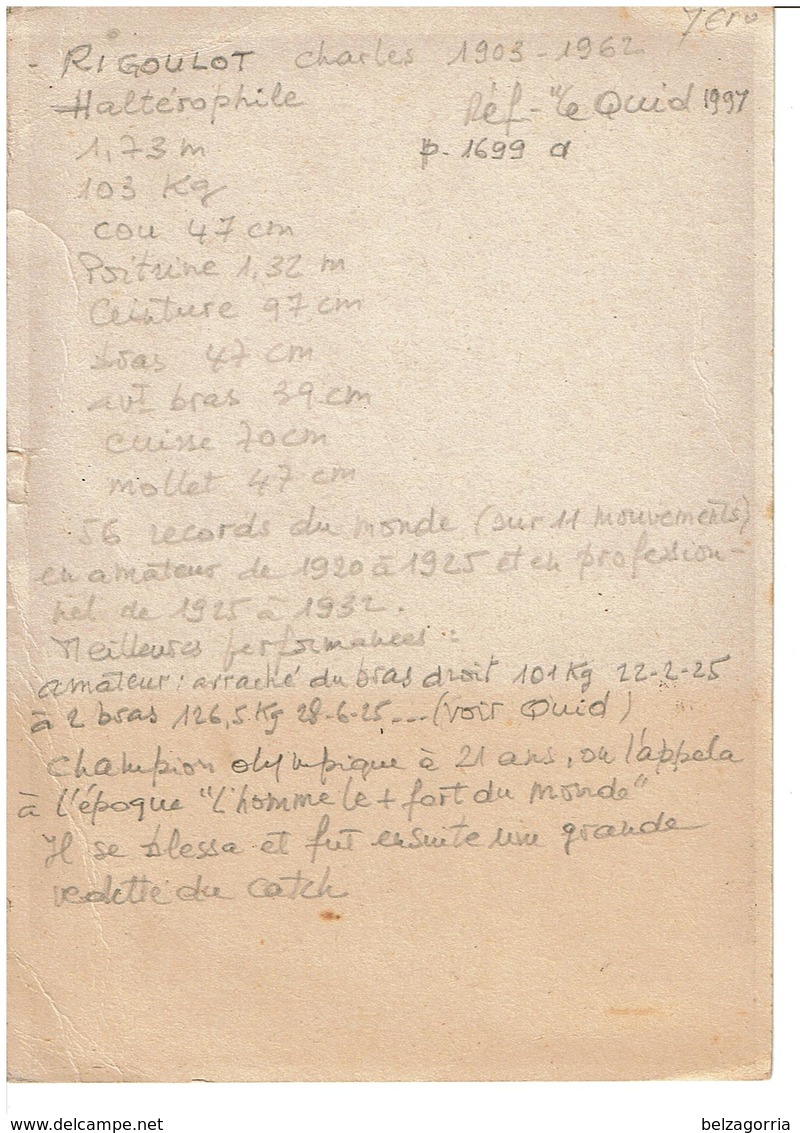 - RIGOULOT Charles 1903-1962
Haltérophile Réf - "le Quid 1997
1,73 m p. 1699 a
103 Kg
cou 47 cm
Poitrine 1,32 m
Ceinture 97 cm
bras 47 cm
avt bras 39 cm
cuisse 70 cm
mollet 47 cm
56 records du monde (sur 11 mouvements)
en amateur de 1920 à 1925 et en profession-
nel de 1925 à 1932.
Meilleures performances :
amateur : arraché du bras droit 101 Kg 22-2-25
à 2 bras 126,5 Kg 28-6-25 ... (voir Quid)
Champion olympique à 21 ans, on l'appela
à l'époque "L'homme le + fort du monde"
Il se blessa et fut ensuite une grande
vedette du catch
www.delcampe.net belzagorria